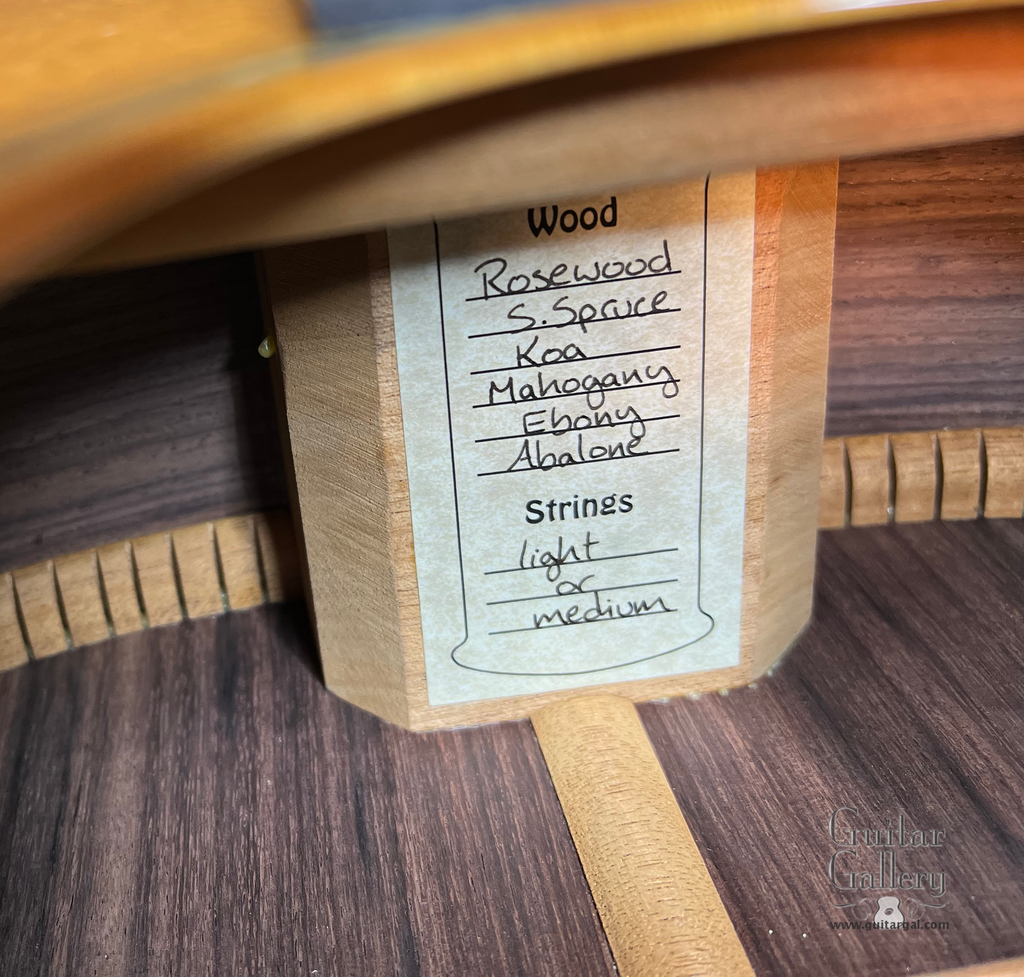 Wood
Rosewood
S. Spruce
Koa
Mahogany
Ebony
Abalone
Strings
light
or
medium
Guitar
Gallery
www.guitargal.com